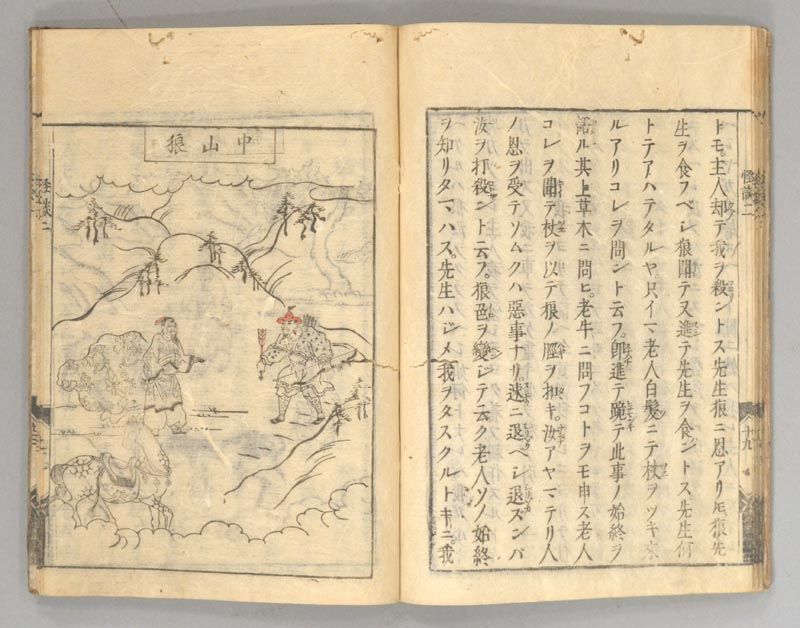 トモ主人却テ我ヲ殺ントス先生狼ニ恩アリ𪜈狼先
生ヲ食フベシ狼聞テ又進テ先生ヲ食ントス先生何
トテアハテタルヤ只イマ老人白髪ニテ杖ヲツキ来
ルアリコレヲ問ント云フ。即進テ跪テ此事ノ始終ヲ
語ル其上草木ニ問ヒ。老牛ニ問フコトヲモ申ス老人
コレヲ聞テ杖ヲ以テ狼ノ脛ヲ扣キ。汝アヤマテリ人
ノ恩ヲ受テソムクハ惡事ナリ。速ニ退ベシ退ズンバ
汝ヲ打殺ント云フ。狼色ヲ變シテ云ク老人ソノ始終
ヲ知リタマハス。先生ハシメ我ヲタスクルトキニ。我
怪談二
十九
中山狼
怪談二